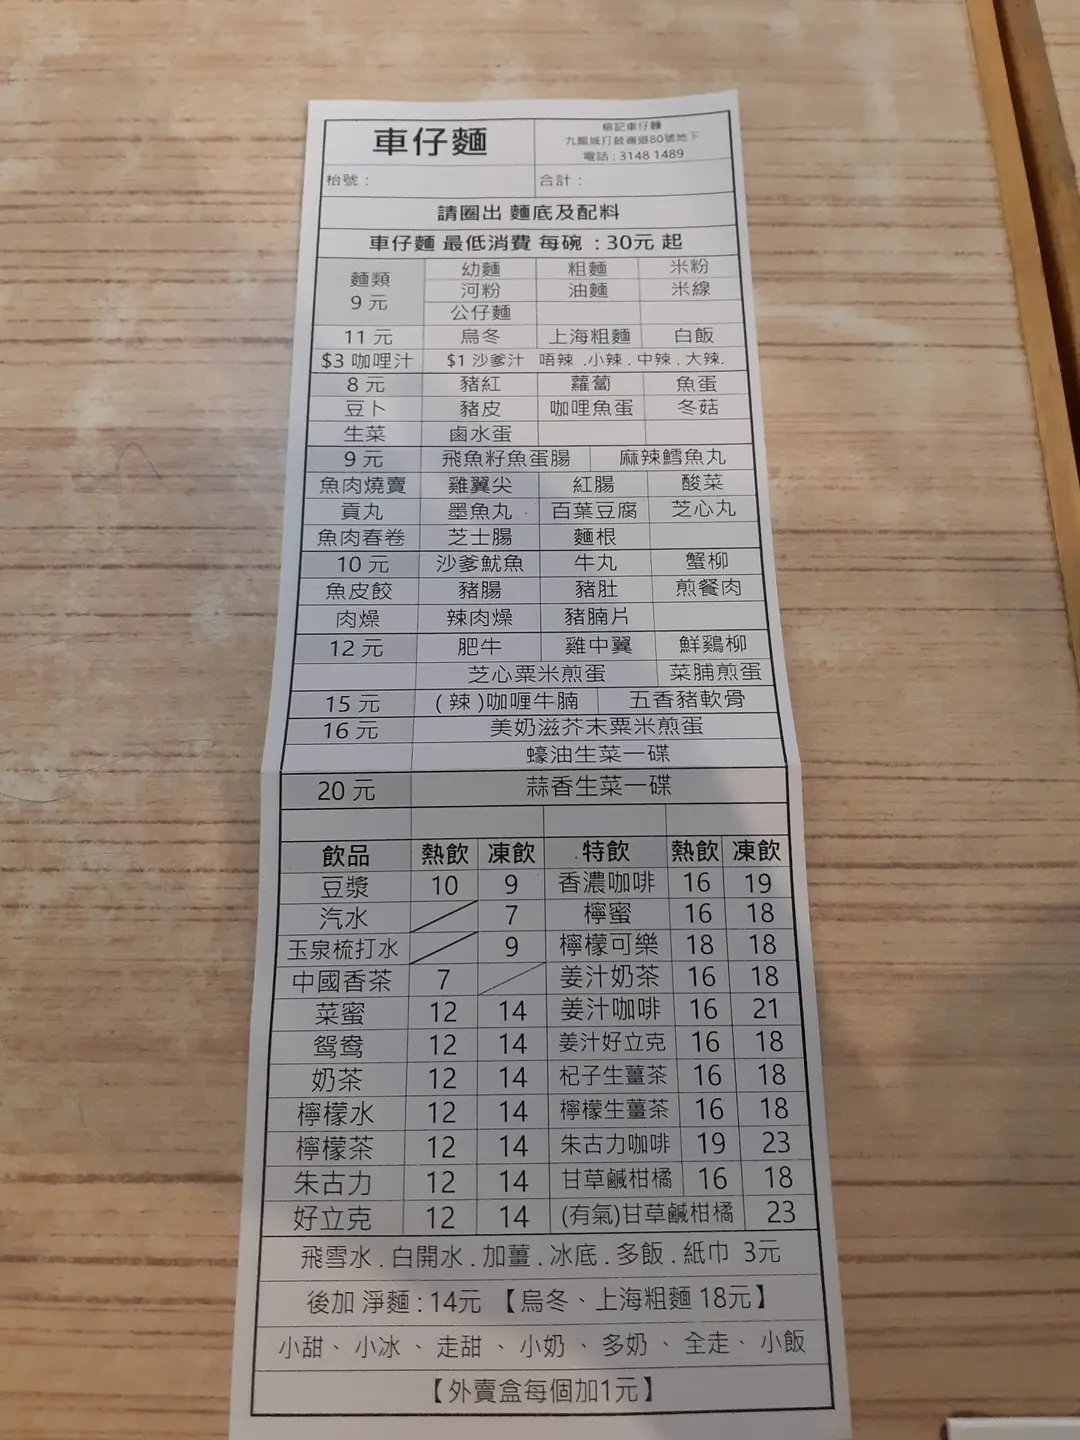 車仔麵
榕記車仔麵
九龍城打鼓嶺道80號地下
電話 : 3148 1489
枱號 : 合計 :
請圈出 麵底及配料
車仔麵 最低消費 每碗 : 30元 起
麵類 9 元 幼麵 粗麵 米粉
河粉 油麵 米線
公仔麵
11 元 烏冬 上海粗麵 白飯
$3 咖哩汁 $1 沙爹汁 唔辣 .小辣 . 中辣 . 大辣.
8 元 豬紅 蘿蔔 魚蛋
豆卜 豬皮 咖哩魚蛋 冬菇
生菜 鹵水蛋
9 元 飛魚籽魚蛋腸 麻辣鱈魚丸
魚肉燒賣 雞翼尖 紅腸 酸菜
貢丸 墨魚丸 百葉豆腐 芝心丸
魚肉春卷 芝士腸 麵根
10 元 沙爹魷魚 牛丸 蟹柳
魚皮餃 豬腸 豬肚 煎餐肉
肉燥 辣肉燥 豬腩片
12 元 肥牛 雞中翼 鮮鷄柳
芝心粟米煎蛋 菜脯煎蛋
15 元 ( 辣 )咖喱牛腩 五香豬軟骨
16 元 美奶滋芥末粟米煎蛋
蠔油生菜一碟
20 元 蒜香生菜一碟
飲品 熱飲 凍飲 特飲 熱飲 凍飲
豆漿 10 9 香濃咖啡 16 19
汽水 7 檸蜜 16 18
玉泉梳打水 9 檸檬可樂 18 18
中國香茶 7 姜汁奶茶 16 18
菜蜜 12 14 姜汁咖啡 16 21
鴛鴦 12 14 姜汁好立克 16 18
奶茶 12 14 杞子生薑茶 16 18
檸檬水 12 14 檸檬生薑茶 16 18
檸檬茶 12 14 朱古力咖啡 19 23
朱古力 12 14 甘草鹹柑橘 16 18
好立克 12 14 (有氣)甘草鹹柑橘 23
飛雪水 . 白開水 . 加薑 . 冰底 . 多飯 . 紙巾 3元
後加 淨麵 : 14元 【烏冬、上海粗麵 18元】
小甜、 小冰 、 走甜 、 小奶 、 多奶 、 全走、 小飯
【外賣盒每個加1元】